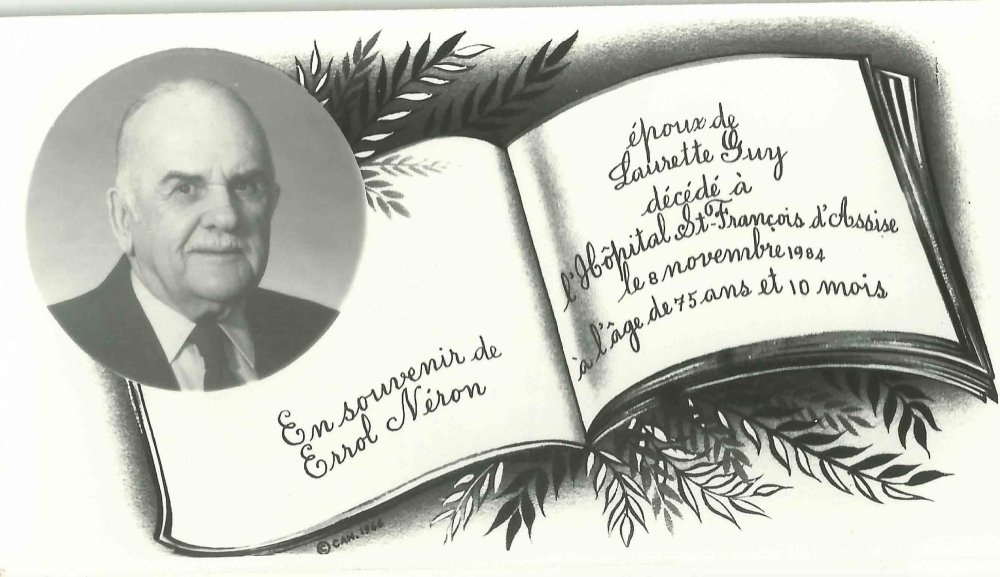 En souvenir de
Errol Néron
époux de
Laurette Guy
décédé à
l'Hôpital St-François d'Assise
le 8 novembre 1984
à l'âge de 75 ans et 10 mois
© CAN. 1966